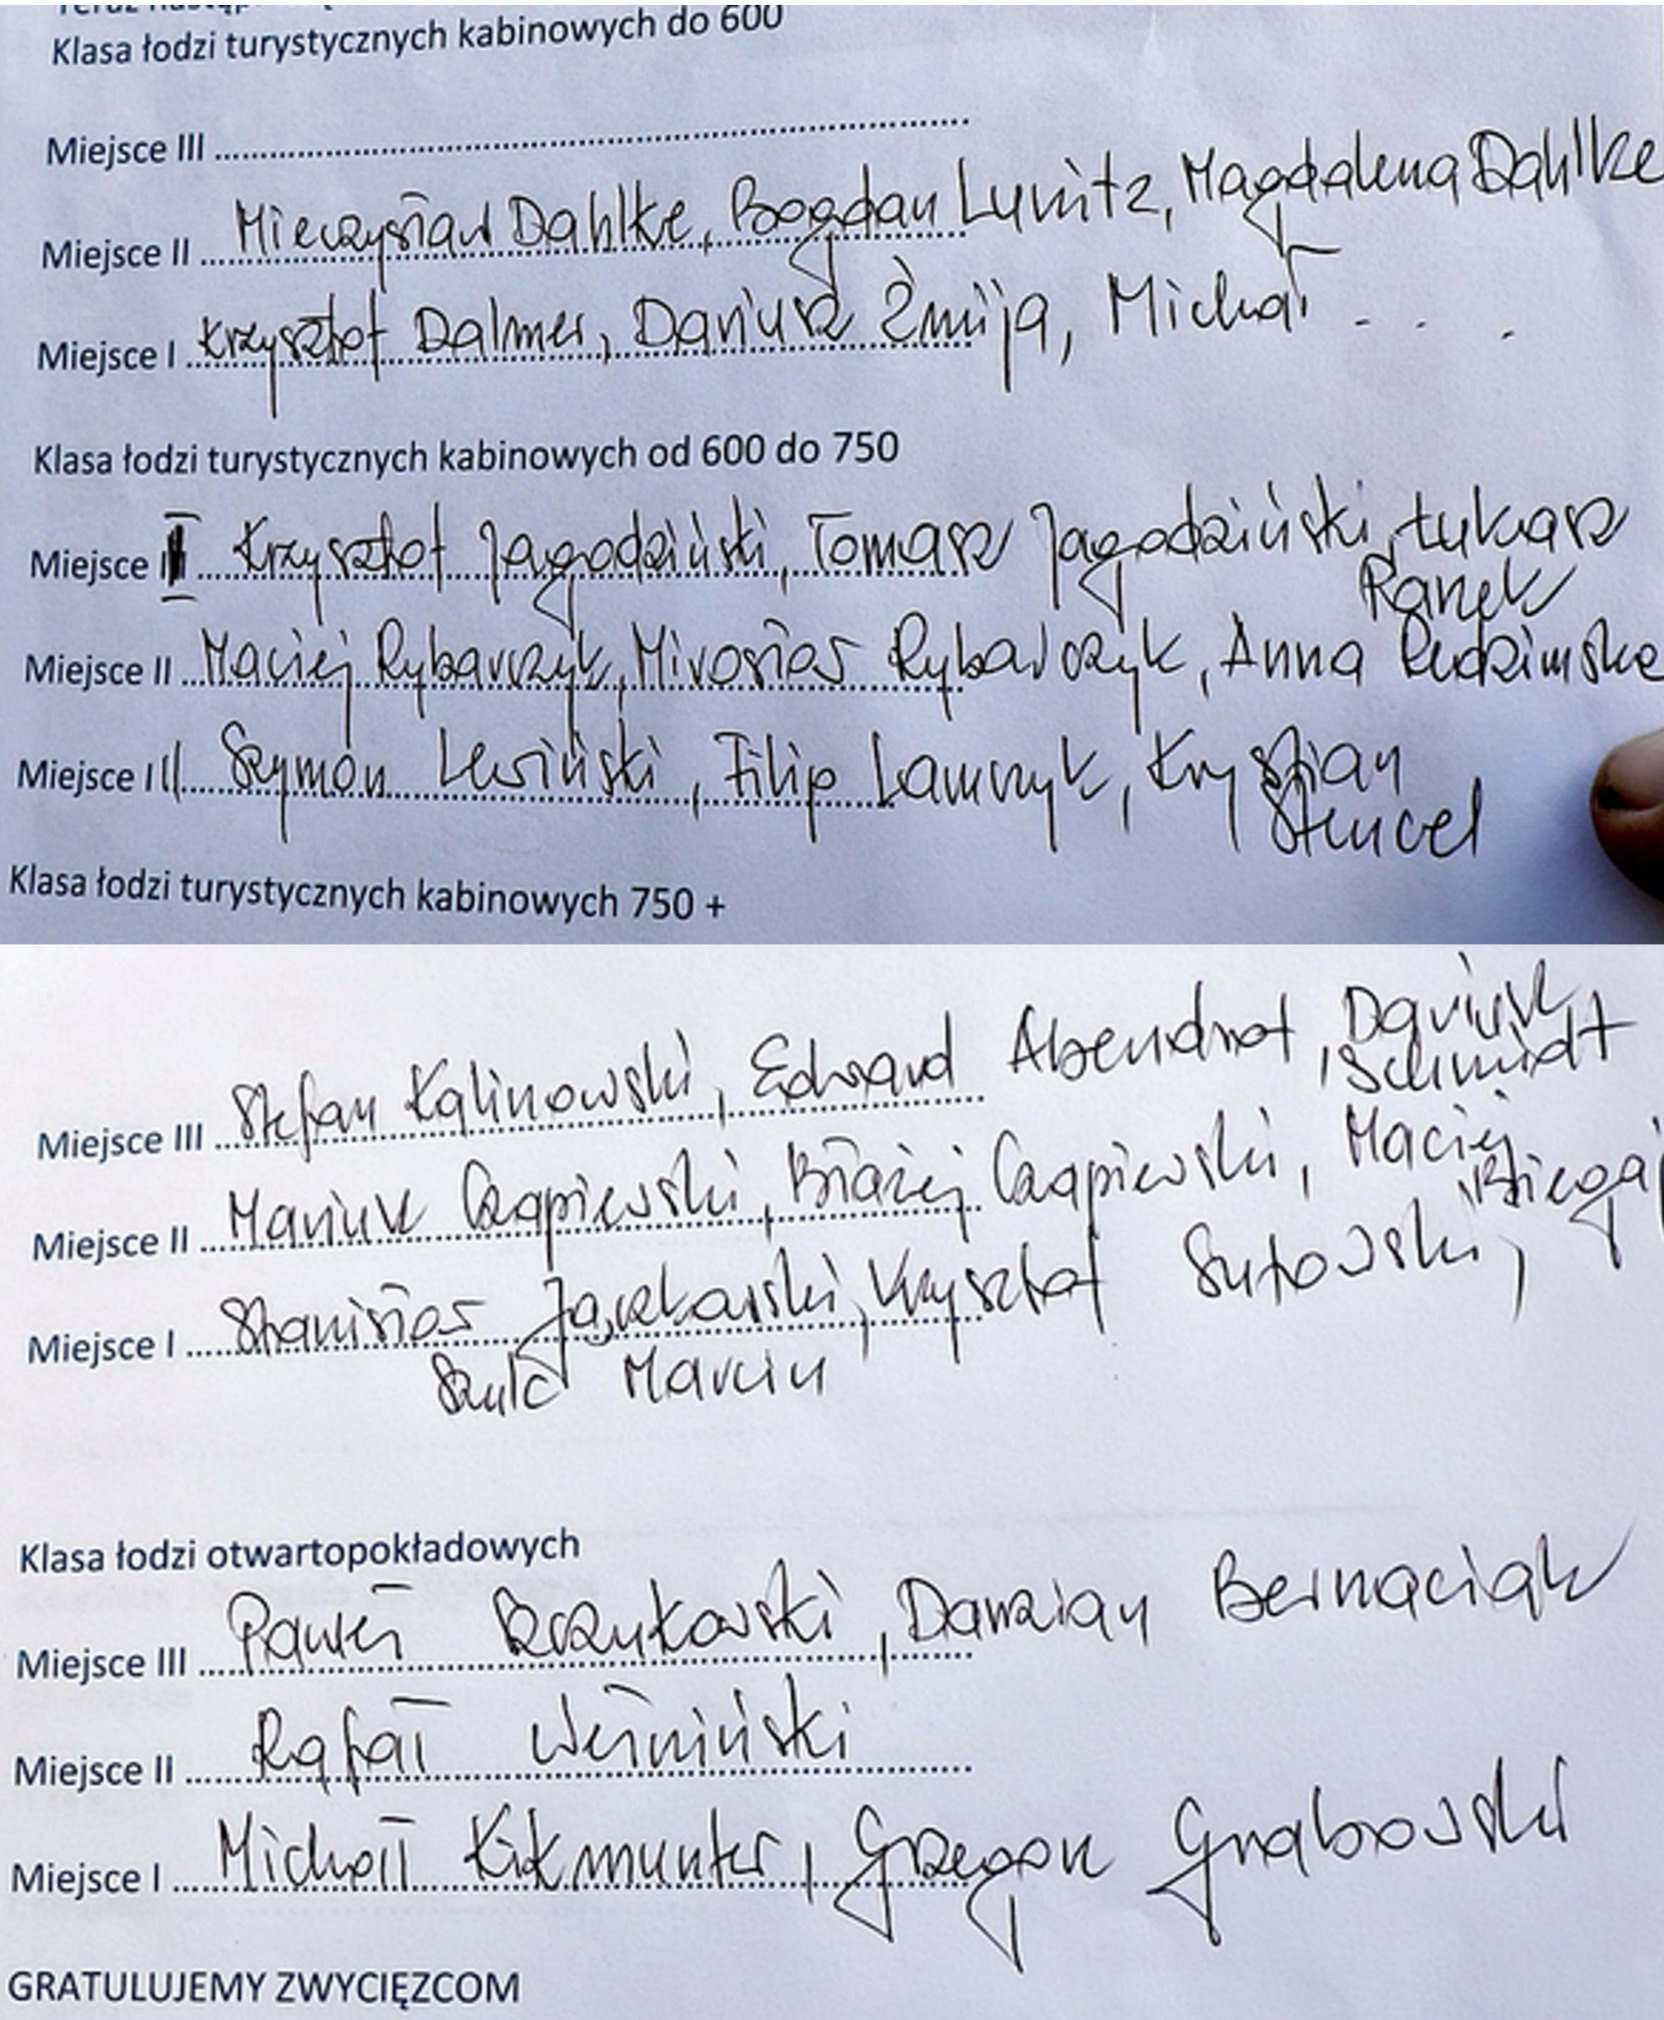 Klasa łodzi turystycznych kabinowych do 600
Miejsce III
Miejsce II Mieczysław Dahlke, Bogdan Lunitz, Magdalena Dahlke
Miejsce I Krzysztof Dalmer, Dariusz Żmija, Michał . . .
Klasa łodzi turystycznych kabinowych od 600 do 750
Miejsce I Krzysztof Jagodziński, Tomasz Jagodziński, Łukasz
Ranek
Miejsce II Maciej Rybarczyk, Mirosław Rybarczyk, Anna Redzimska
Miejsce III Szymon Lewiński, Filip Lawrzyk, Krystian
Stencel
Klasa łodzi turystycznych kabinowych 750 +
Miejsce III Stefan Kalinowski, Edward Abendrot, Dariusz
Schmidt
Miejsce II Mariusz Czapiewski, Błażej Czapiewski, Maciej
Biegaj
Miejsce I Stanisław Krzysztof Sutowski,
Szulc Marcin
Klasa łodzi otwartopokładowych
Miejsce III Paweł Damzian Bernaciak
Miejsce II Rafał
Miejsce I Michał Kitkmunter, Grzegorz Grabowski
GRATULUJEMY ZWYCIĘZCOM